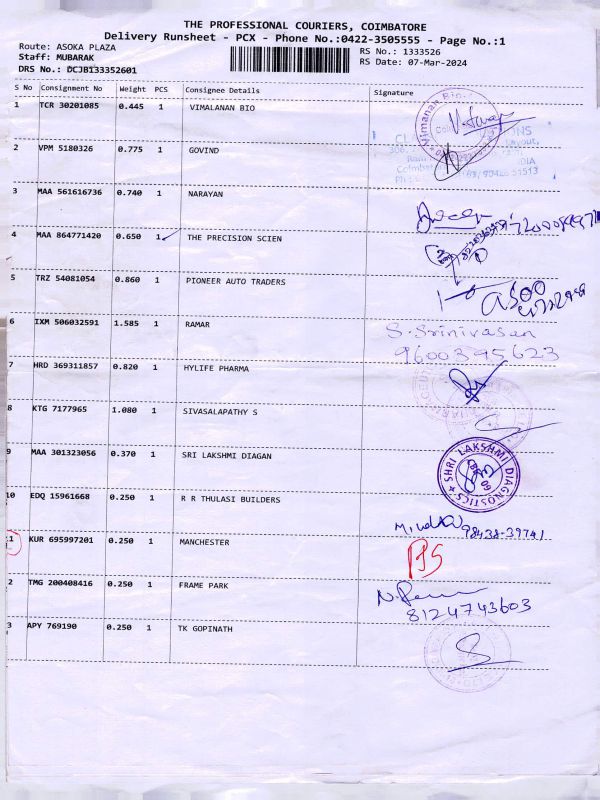 THE PROFESSIONAL COURIERS, COIMBATORE
Delivery Runsheet - PCX - Phone No.:0422-3505555 - Page No.:1
Route: ASOKA PLAZA
Staff: MUBARAK
DRS No.: DCJB133352601
RS No.: 1333526
RS Date: 07-Mar-2024
S No Consignment No Weight PCS Consignee Details Signature
1 TCR 30201085 0.445 1 VIMALANAN BIO
2 VPM 5180326 0.775 1 GOVIND
3 MAA 561616736 0.740 1 NARAYAN
4 MAA 864771420 0.650 1 THE PRECISION SCIEN
5 TRZ 54081054 0.860 1 PIONEER AUTO TRADERS
6 IXM 506032591 1.585 1 RAMAR S. Srinivasan
9600395623
7 HRD 369311857 0.820 1 HYLIFE PHARMA
8 KTG 7177965 1.080 1 SIVASALAPATHY S
9 MAA 301323056 0.370 1 SRI LAKSHMI DIAGAN SHRI LAKSHMI DIAGNOSTICS
10 EDQ 15961668 0.250 1 R R THULASI BUILDERS 98438-39741
11 KUR 695997201 0.250 1 MANCHESTER
2 TMG 200408416 0.250 1 FRAME PARK
8124743603
3 APY 769190 0.250 1 TK GOPINATH